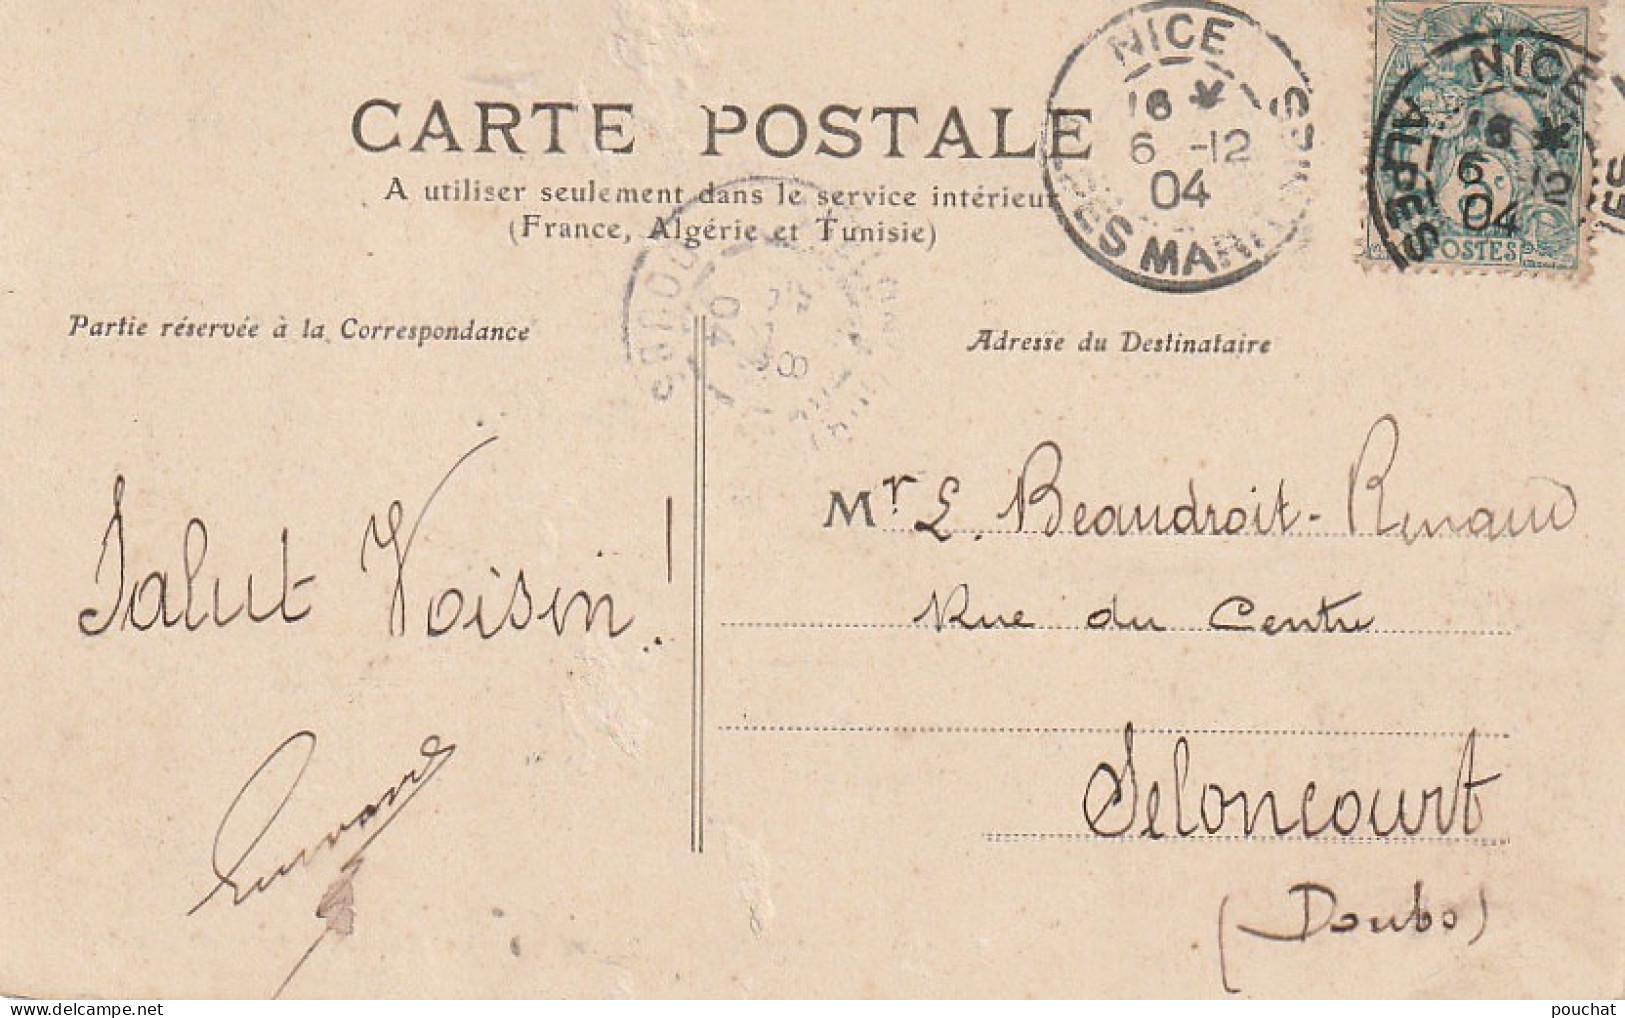 CARTE POSTALE
A utiliser seulement dans le service intérieur
(France, Algérie et Tunisie)
NICE
18 *
6 -12
04
ALPES MARITIMES
NICE
18 *
6 12
04
ALPES MARITIMES
POSTES
DOUBS
04
Partie réservée à la Correspondance
Adresse du Destinataire
Salut Voisin!
Mr L. Beaudroit-Renaud
Rue du Centre
Seloncourt
(Doubs)
pouchat